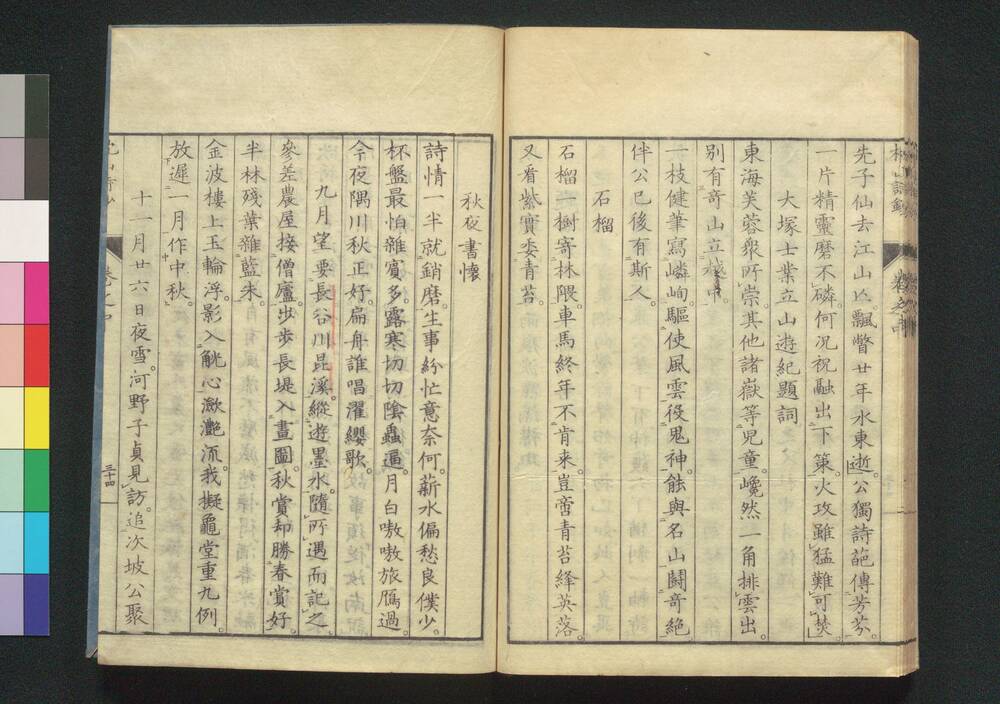 先子仙去江山〻飄瞥廿年水東逝公獨詩葩傳芳芬
一片精靈磨不磷何況祝融出下策火攻雖猛難可焚
大塚士業立山遊紀題詞
東海芙蓉衆所崇其他諸嶽等児童巉然一角排雲出
別有奇山立越中
一枝健筆寫嶙峋驅使風雲役鬼神能與名山鬪奇絶
伴公已後有斯人
石榴
石榴一樹寄林隈車馬終年不肯来豈啻青苔絳英落
又看紫實委青苔
秋夜書懐
詩情一半就銷磨生事紛忙意奈何薪水偏愁良僕少
杯盤最怕雜賓多露寒切切陰蟲逼月白嗷嗷旅鴈過
今夜隅川秋正好扁舟誰唱濯纓歌
九月望要長谷川昆溪縱遊墨水隨所遇而記之
參差農屋接僧廬歩歩長堤入畫圖秋賞却勝春賞好
半林殘葉雜藍朱
金波樓上玉輪浮影入觥心瀲灔流我擬龜堂重九例
放遲一月作中秋
十一月廿六日夜雪河野子貞見訪追次坡公聚
卷之中
三十四